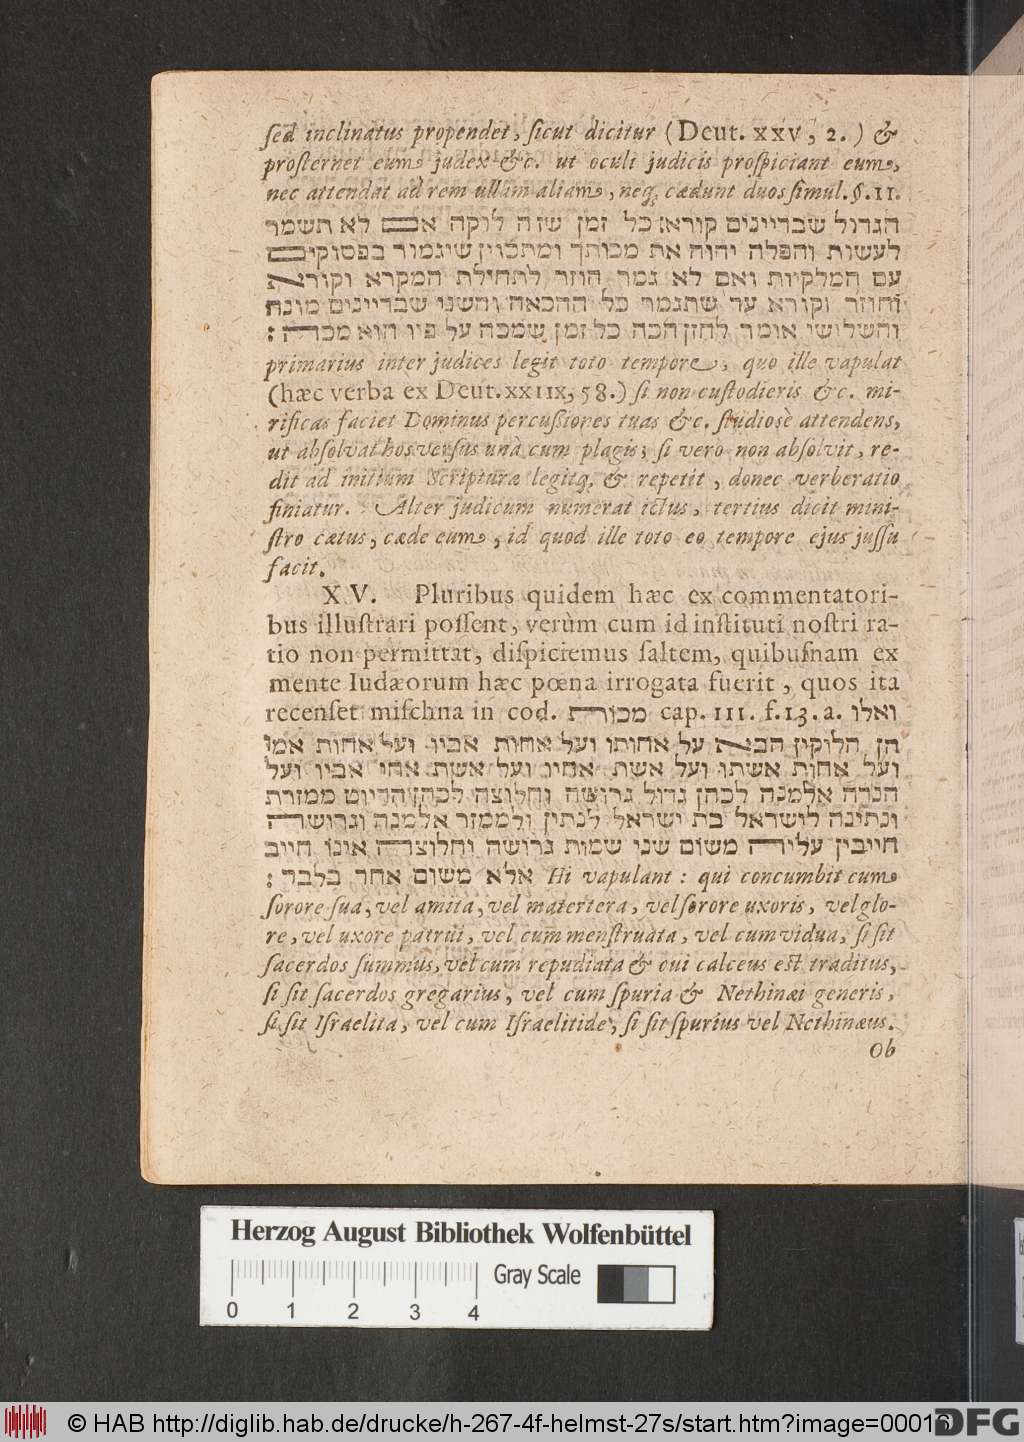 sed inclinatus propendet, sicut dicitur (Deut. XXV, 2.) &
prosternet eum judex &c. ut oculi judicis prospiciant eum,
nec attendat ad rem ullam aliam, neq; cædunt duos simul. §. 11.
הגדול שבדיינים קורא: כל זמן שזה לוקה אם לא תשמר
לעשות והפלה יהוה את מכותך ומתכוין שיגמור בפסוקים
עם המלקיות ואם לא גמר חוזר לתחילת המקרא וקורא
וחוזר וקורא עד שתגמר כל ההכאה והשני שבדיינים מונה
והשלישי אומר לחזן הכה כל זמן שמכה על פיו הוא מכה:
primarius inter judices legit toto tempore, quo ille vapulat
(hæc verba ex Deut. XXIIX, 58.) si non custodieris &c. mi-
rificas faciet Dominus percussiones tuas &c. studiosè attendens,
ut absolvat hos versus unà cum plagis; si vero non absolvit, re-
dit ad initium Scripturæ legitq; & repetit, donec verberatio
finiatur. Alter judicum numerat ictus, tertius dicit mini-
stro cætus, cæde eum, id quod ille toto eo tempore ejus jussu
facit.
XV. Pluribus quidem hæc ex commentatori-
bus illustrari possent, verùm cum id instituti nostri ra-
tio non permittat, dispiciemus saltem, quibusnam ex
mente Iudæorum hæc pœna irrogata fuerit, quos ita
recenset mischna in cod. מכות cap. III. f. 13. a. ואלו
הן הלוקין הבא על אחותו ועל אחות אביו ועל אחות אמו
ועל אחות אשתו ועל אשת אחיו ועל אשת אחי אביו ועל
הנדה אלמנה לכהן גדול גרושה וחלוצה לכהן הדיוט ממזרת
ונתינה לישראל בת ישראל לנתין ולממזר אלמנה וגרושה
חייבין עליה משום שני שמות גרושה וחלוצה אינו חייב
אלא משום אחד בלבד: Hi vapulant: qui concumbit cum
sorore sua, vel amita, vel matertera, vel sorore uxoris, vel glo-
re, vel uxore patrui, vel cum menstruata, vel cum vidua, si sit
sacerdos summus, vel cum repudiata & cui calceus est traditus,
si sit sacerdos gregarius, vel cum spuria & Nethinæi generis,
si sit Israelita, vel cum Israelitide, si sit spurius vel Nethinæus.
Ob
Herzog August Bibliothek Wolfenbüttel
Gray Scale
0 1 2 3 4
© HAB http://diglib.hab.de/drucke/h-267-4f-helmst-27s/start.htm?image=00016
DFG